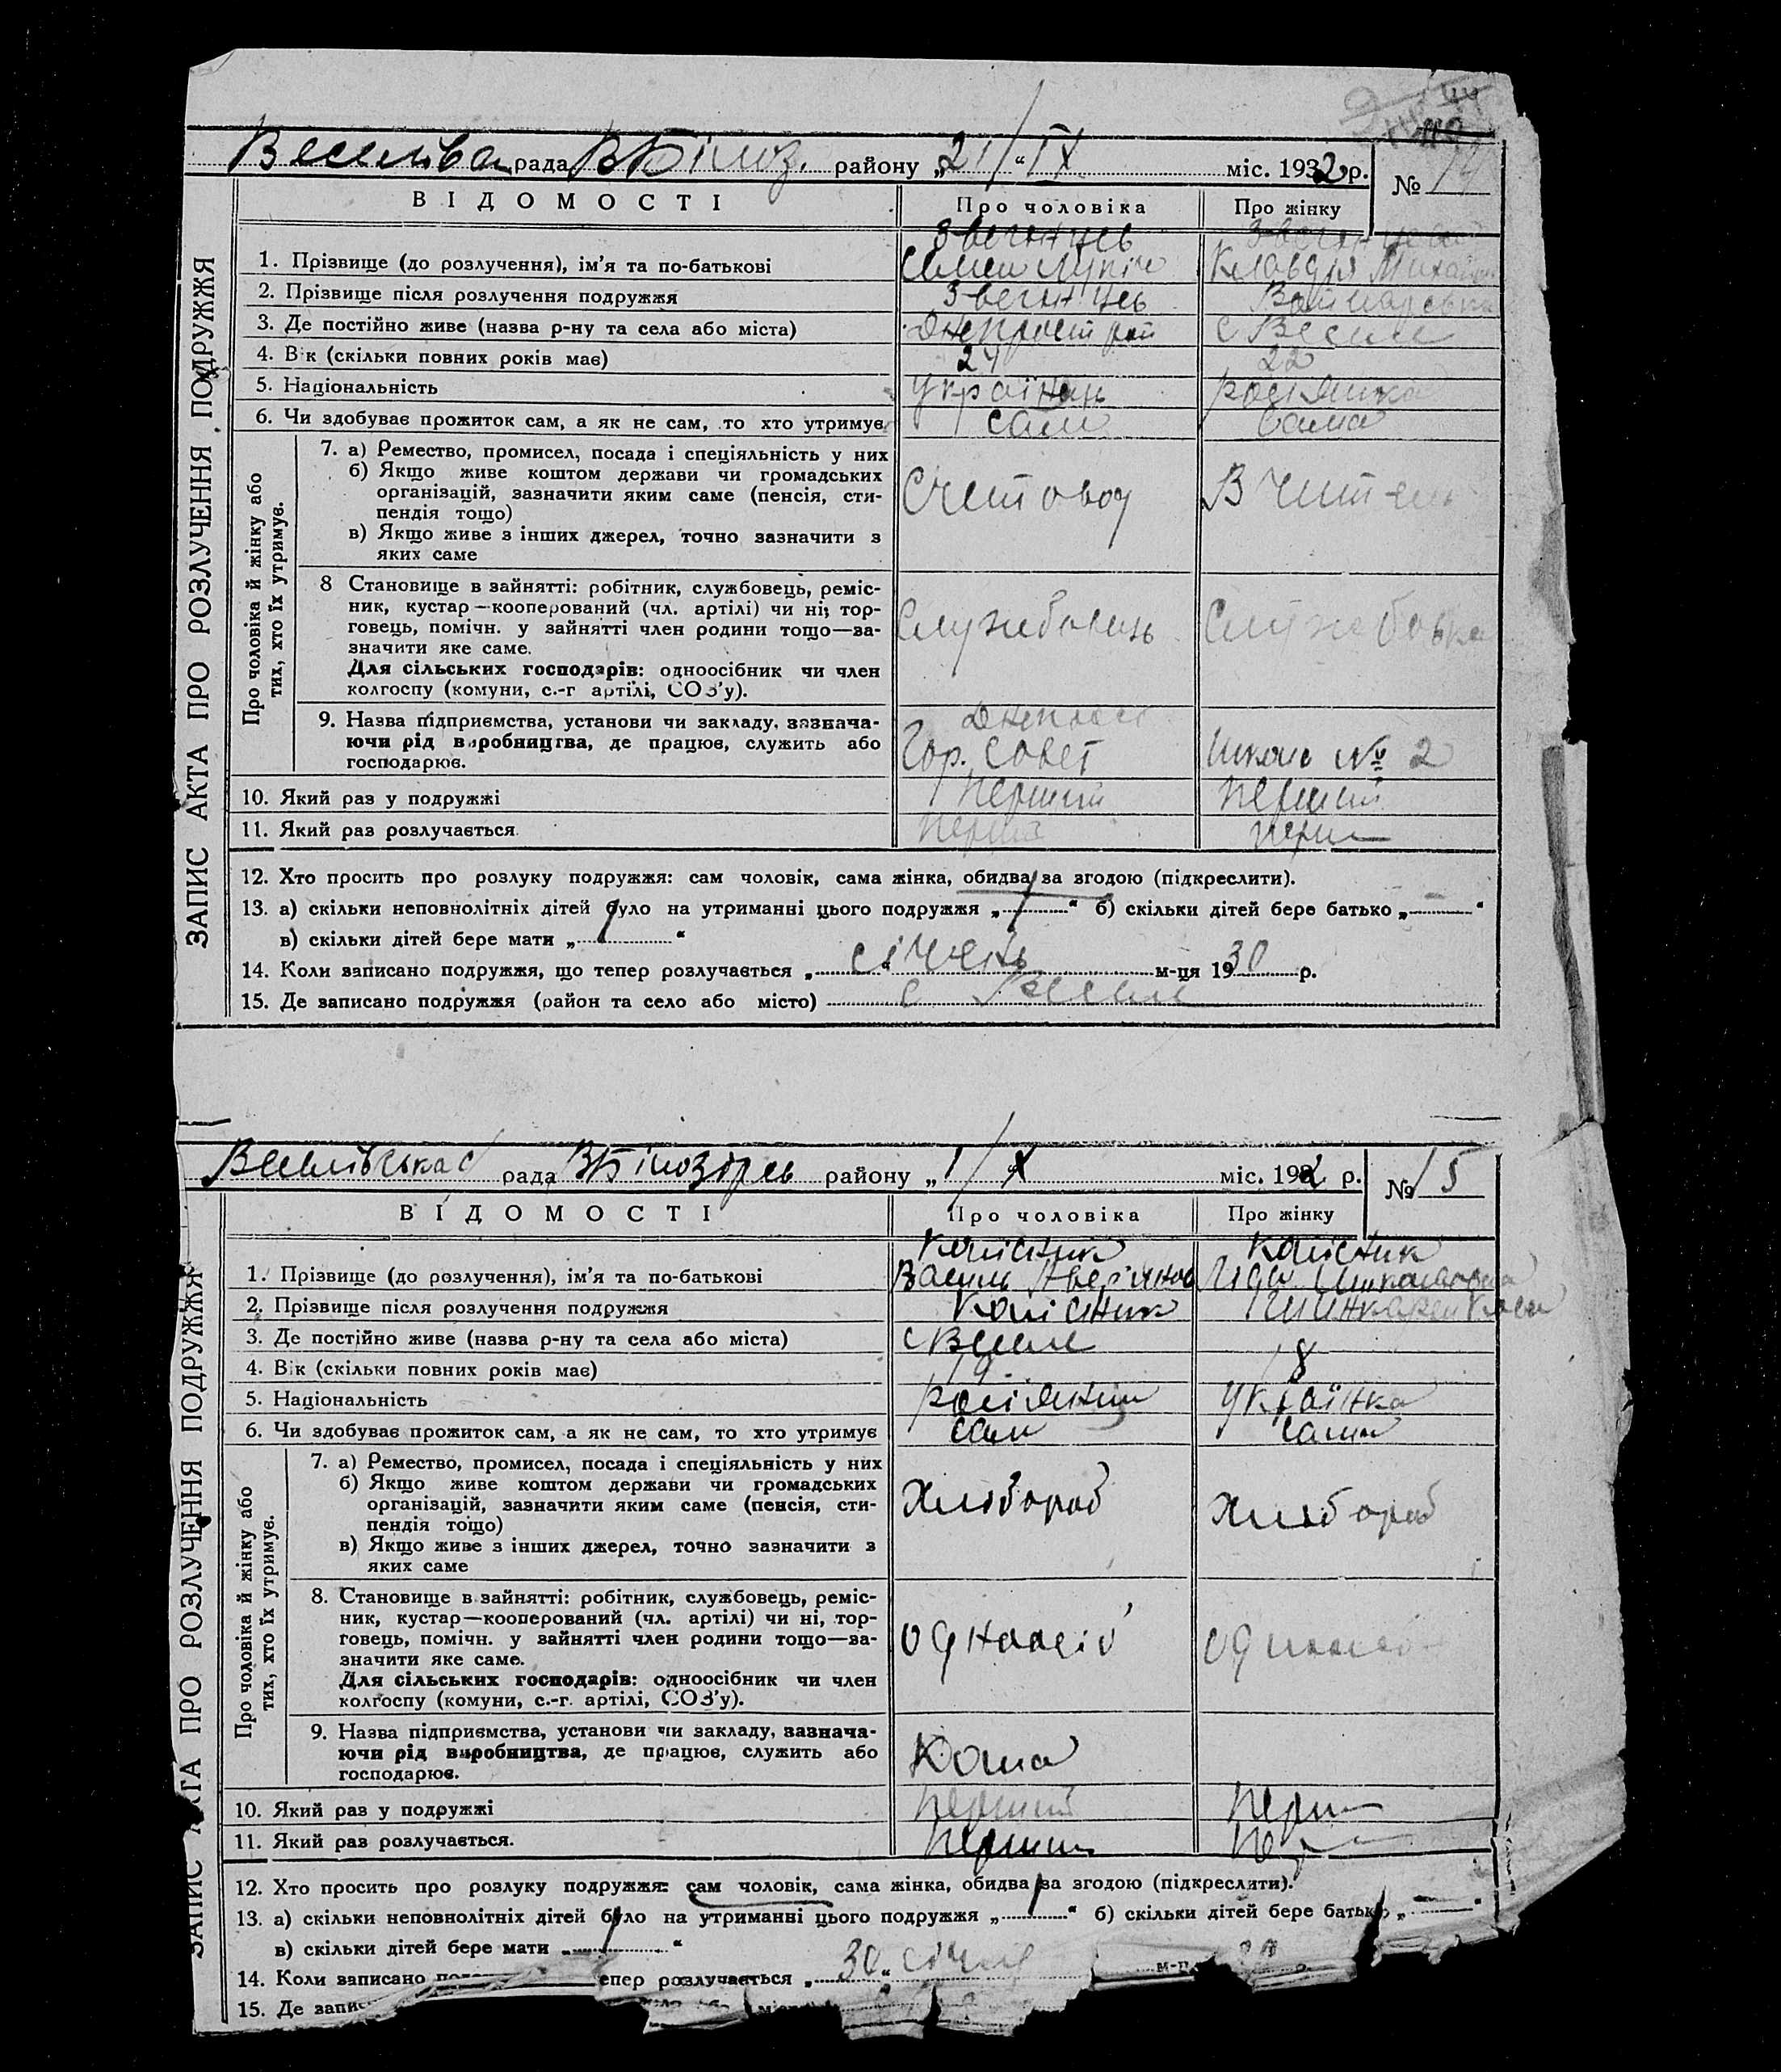 рада ВБілоз. району „21/“ IX міс. 1932 р. № 14
ЗАПИС АКТА ПРО РОЗЛУЧЕННЯ ПОДРУЖЖЯ
ВІДОМОСТІ Про чоловіка Про жінку
1. Прізвище (до розлучення), ім’я та по-батькові Клавдія
2. Прізвище після розлучення подружжя
3. Де постійно живе (назва р-ну та села або міста) с Веселе
4. Вік (скільки повних років має) 24 22
5. Національність Українець росіянка
6. Чи здобуває прожиток сам, а як не сам, то хто утримує сам сама
Про чоловіка й жінку або
тих, хто їх утримує.
7. а) Ремество, промисел, посада і спеціяльність у них
б) Якщо живе коштом держави чи громадських
організацій, зазначити яким саме (пенсія, сти- Счетовод Вчитель
пендія тощо)
в) Якщо живе з інших джерел, точно зазначити з
яких саме
8 Становище в зайнятті: робітник, службовець, реміс-
ник, кустар—кооперований (чл. артілі) чи ні; тор-
говець, помічн. у зайнятті член родини тощо—за- Службовець Службовка
значити яке саме.
Для сільських господарів: одноосібник чи член
колгоспу (комуни, с.-г артілі, СОЗ’у).
9. Назва підприємства, установи чи закладу, зазнача-
ючи рід виробництва, де працює, служить або Гор. Совет Школа № 2
господарює.
10. Який раз у подружжі перший перший
11. Який раз розлучається перш
12. Хто просить про розлуку подружжя: сам чоловік, сама жінка, обидва за згодою (підкреслити).
13. а) скільки неповнолітніх дітей було на утриманні цього подружжя „ “ б) скільки дітей бере батько „ — “
в) скільки дітей бере мати „ “
14. Коли записано подружжя, що тепер розлучається „ січень м-ця 1930 р.
15. Де записано подружжя (район та село або місто) с Веселе
Веселівська рада ВБілозірсь району „1/“ X міс. 1932 р. № 15
ЗАПИС АКТА ПРО РОЗЛУЧЕННЯ ПОДРУЖЖЯ
ВІДОМОСТІ Про чоловіка Про жінку
Колісник Колісник
1. Прізвище (до розлучення), ім’я та по-батькові Василь
2. Прізвище після розлучення подружжя Колісник
3. Де постійно живе (назва р-ну та села або міста) с Веселе
4. Вік (скільки повних років має) 19 18
5. Національність росіянин Українка
6. Чи здобуває прожиток сам, а як не сам, то хто утримує сам сама
Про чоловіка й жінку або
тих, хто їх утримує.
7. а) Ремество, промисел, посада і спеціяльність у них
б) Якщо живе коштом держави чи громадських
організацій, зазначити яким саме (пенсія, сти- Хлібороб Хлібороб
пендія тощо)
в) Якщо живе з інших джерел, точно зазначити з
яких саме
8. Становище в зайнятті: робітник, службовець, реміс-
ник, кустар—кооперований (чл. артілі) чи ні, тор-
говець, помічн. у зайнятті член родини тощо—за-
значити яке саме.
Для сільських господарів: одноосібник чи член
колгоспу (комуни, с.-г. артілі, СОЗ’у).
9. Назва підприємства, установи чи закладу, зазнача-
ючи рід виробництва, де працює, служить або
господарює.
10. Який раз у подружжі перший перш
11. Який раз розлучається. перший
12. Хто просить про розлуку подружжя: сам чоловік, сама жінка, обидва за згодою (підкреслити).
13. а) скільки неповнолітніх дітей було на утриманні цього подружжя „ “ б) скільки дітей бере батько „ — “
в) скільки дітей бере мати „ “
14. Коли записано епер розлучається „ 30 “ січня м-ц
15. Де запис